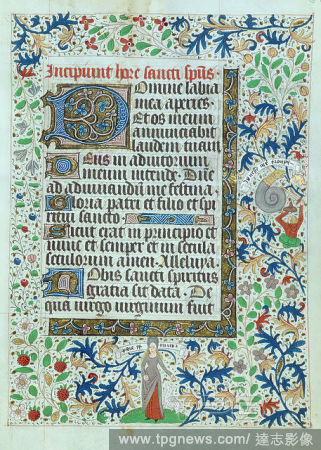 Incipiunt hore sancti sp̃us.
Domine labia
mea aperies.
Et os meum
annunciabit
laudem tuam
Deus in adiutorium
meum intende. Dñe
ad adiuvandũ me festina.
Gloria patri et filio et spi
ritui sancto.
Sicut erat in principio et
nunc et semper et in secula
seculorum amen. Alleluya.
Nobis sancti spiritus
gratia sit data. De
qua virgo virginum fuit
www.tpgnews.com / 達志影像